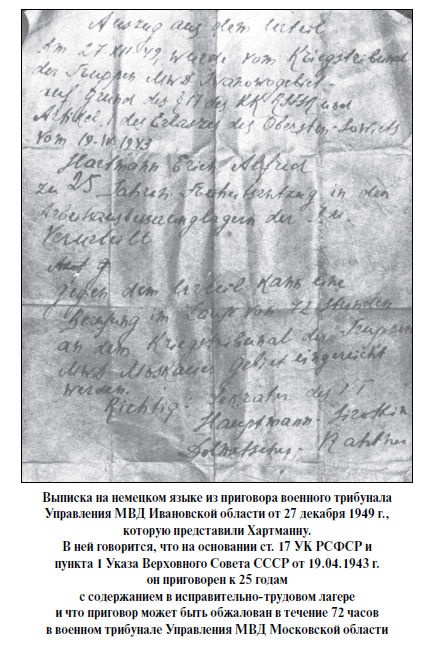 Auszug aus dem Urteil.
Am 27 XII 49, wurde vom Kriegstribunal
der Truppen MWD Iwanowogebiet
auf Grund des § 17 des KK RSFSR und
Artikel 1 des Erlasses des Obersten Sowiets
vom 19-IV 1943
Hartmann Erich Alfred
zu 25 Jahren Freiheitsentzug in den
Arbeitsausbesserungslagern der
Verurteilt
gegen dem Urteil kann eine
Berufung im Laufe von 72 Stunden
an dem Kriegstribunal der Truppen
MWD Moskauer Gebiet eingereicht
werden.
Richtig: Sekretär des
Hauptmann - Sirotkin
Dolmetscher -
Выписка на немецком языке из приговора военного трибунала
Управления МВД Ивановской области от 27 декабря 1949 г.,
которую представили Хартманну.
В ней говорится, что на основании ст. 17 УК РСФСР и
пункта 1 Указа Верховного Совета СССР от 19.04.1943 г.
он приговорен к 25 годам
с содержанием в исправительно-трудовом лагере
и что приговор может быть обжалован в течение 72 часов
в военном трибунале Управления МВД Московской области